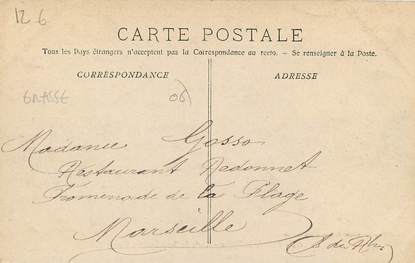 12 6
CARTE POSTALE
Tous les Pays étrangers n'acceptent pas la Correspondance au recto. – Se renseigner à la Poste.
CORRESPONDANCE
ADRESSE
GRASSE
06
Madame Gosso
Restaurant Redonnet
Promenade de la Plage
Marseille
B du Rhne